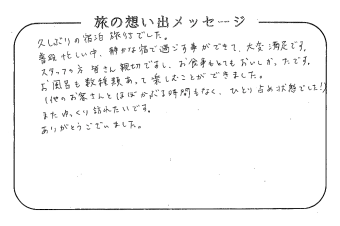 旅の想い出メッセージ
久しぶりの宿泊旅行でした。
普段忙しい中、静かな宿で過ごす事ができて、大変満足です。
スタッフの方皆さん親切ですし、お食事もとてもおいしかったです。
お風呂も数種類あって楽しむことができました。
(他のお客さんとほぼかぶる時間もなく、ひとり占め状態でした!)
またゆっくり訪れたいです。
ありがとうございました。